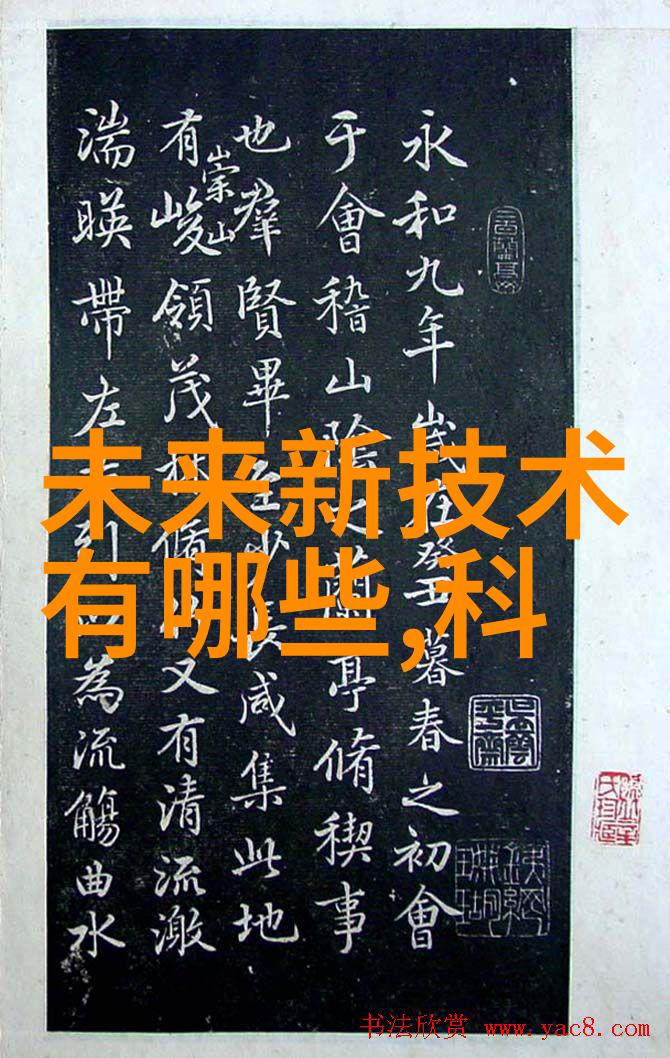 永和九年歲在癸丑暮春之初會
于會稽山陰之蘭亭脩稧事
也羣賢畢至少長咸集此地
有崇山峻領茂林脩竹又有清流激
湍暎帶左引為流觴曲水
未来新技术
有哪些,科
书法欣赏 www.yac8.com